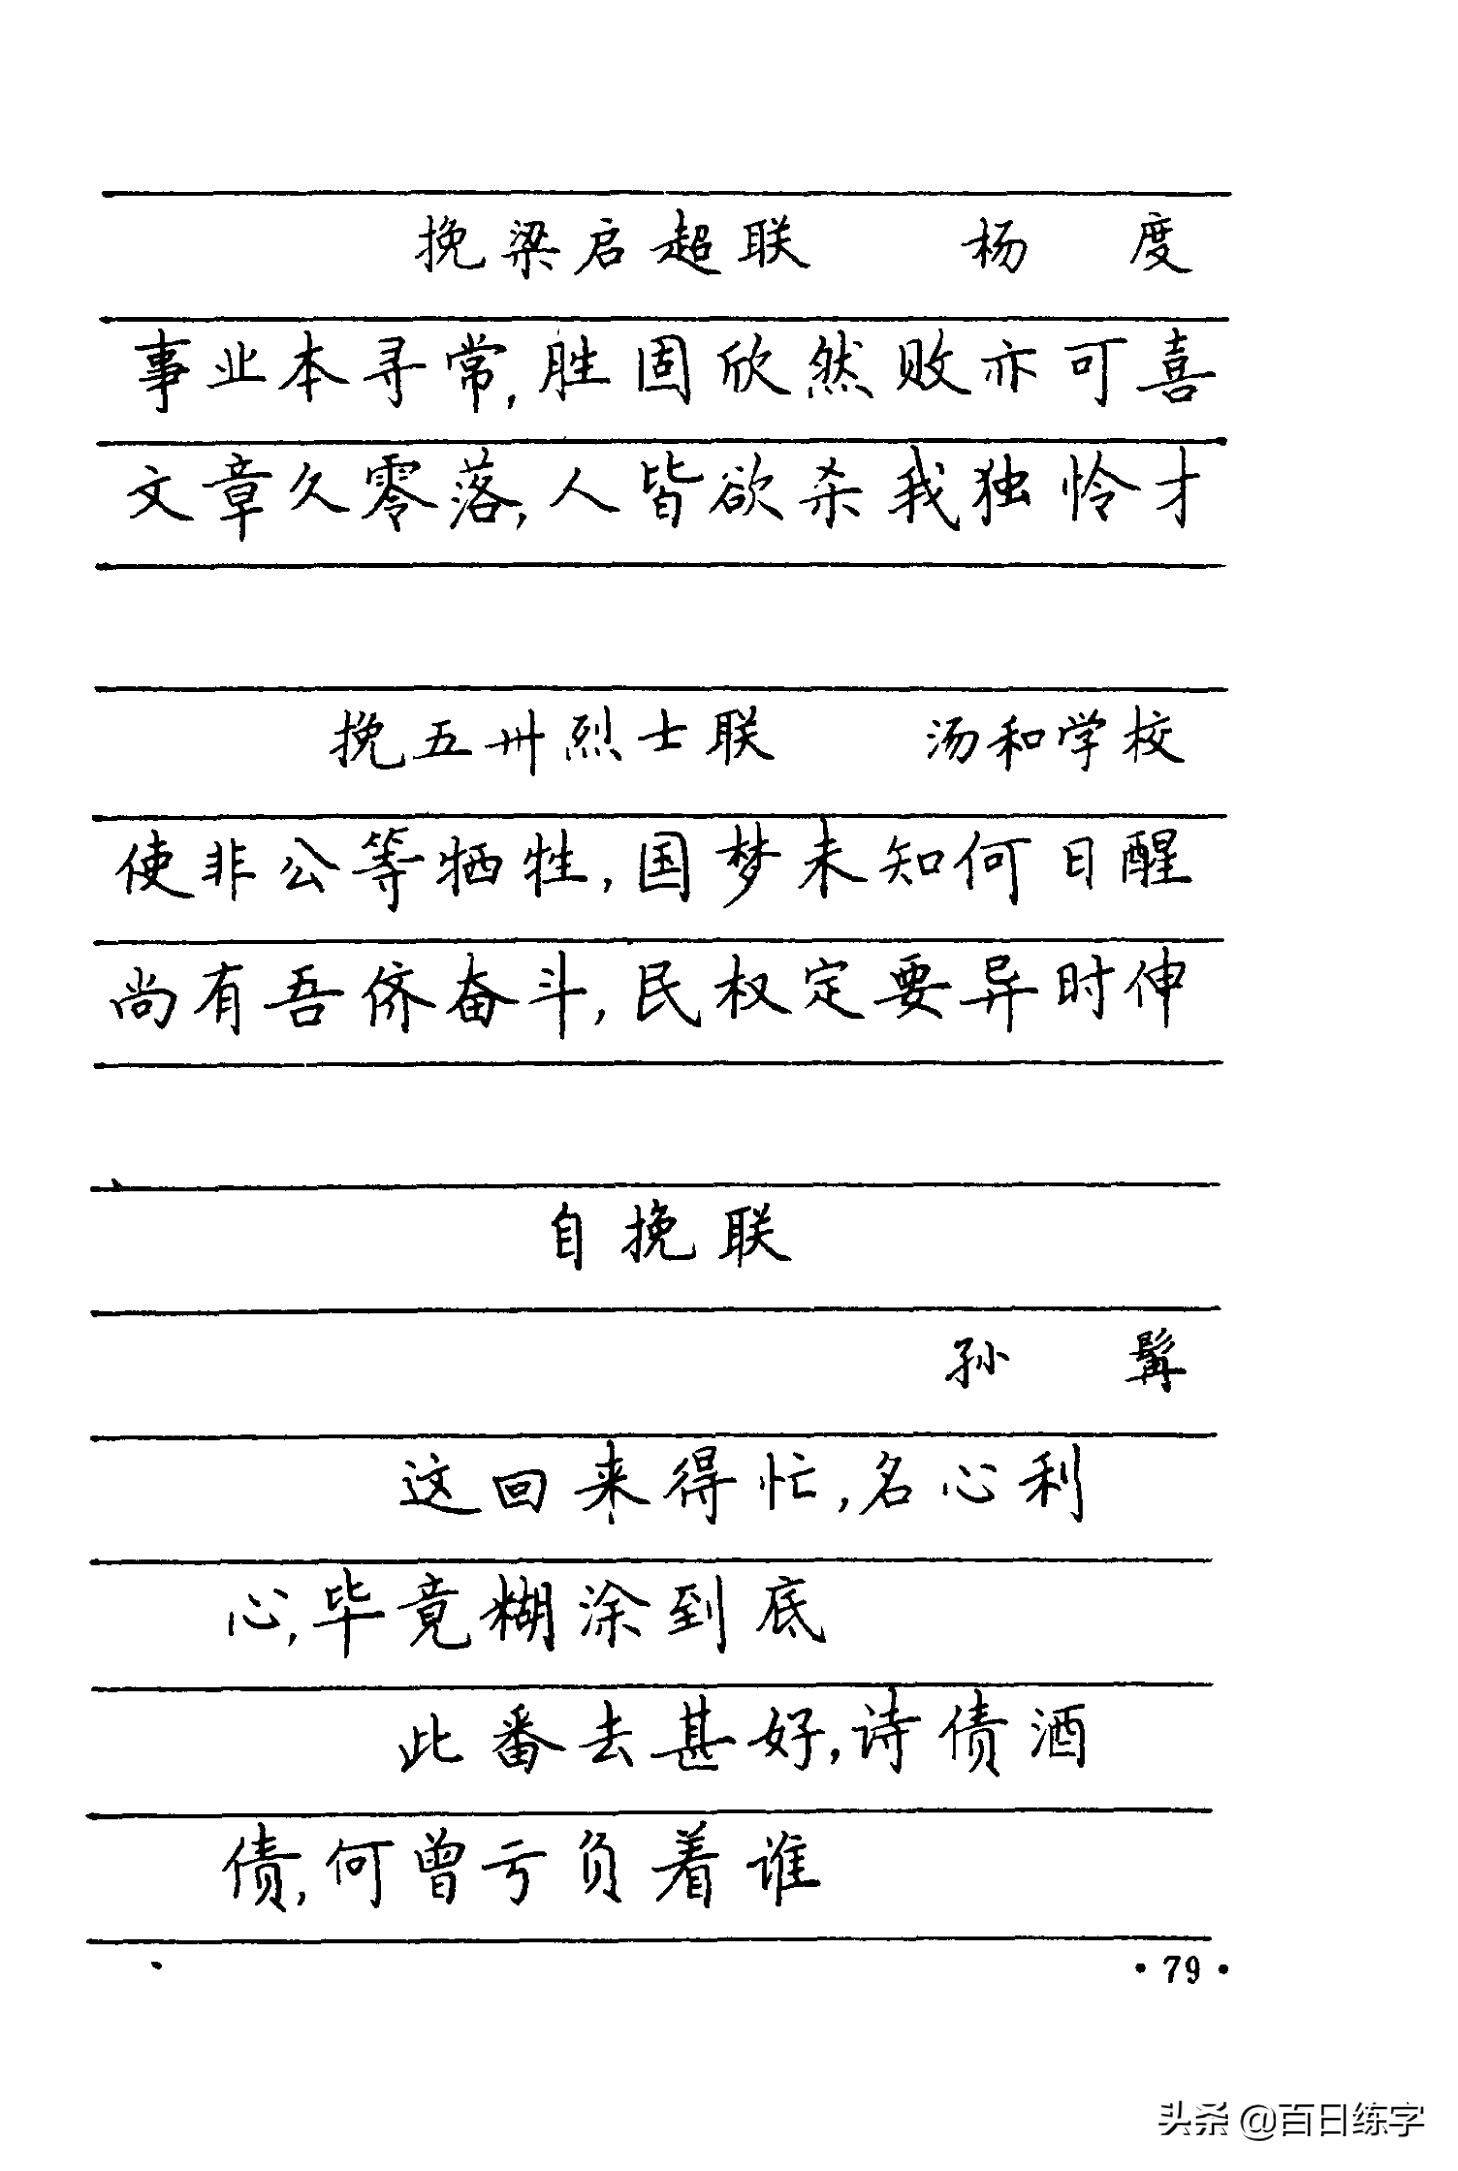 挽梁启超联 杨度
事业本寻常,胜固欣然败亦可喜
文章久零落,人皆欲杀我独怜才
挽五卅烈士联 汤和学校
使非公等牺牲,国梦未知何日醒
尚有吾侪奋斗,民权定要异时伸
自挽联
孙髯
这回来得忙,名心利
心,毕竟糊涂到底
此番去甚好,诗债酒
债,何曾亏负着谁
·79·
头条 @百日练字